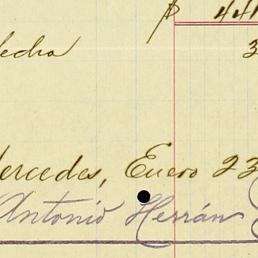 $ 441
edra 3
Mercedes, Enero 23
Antonio Herrán